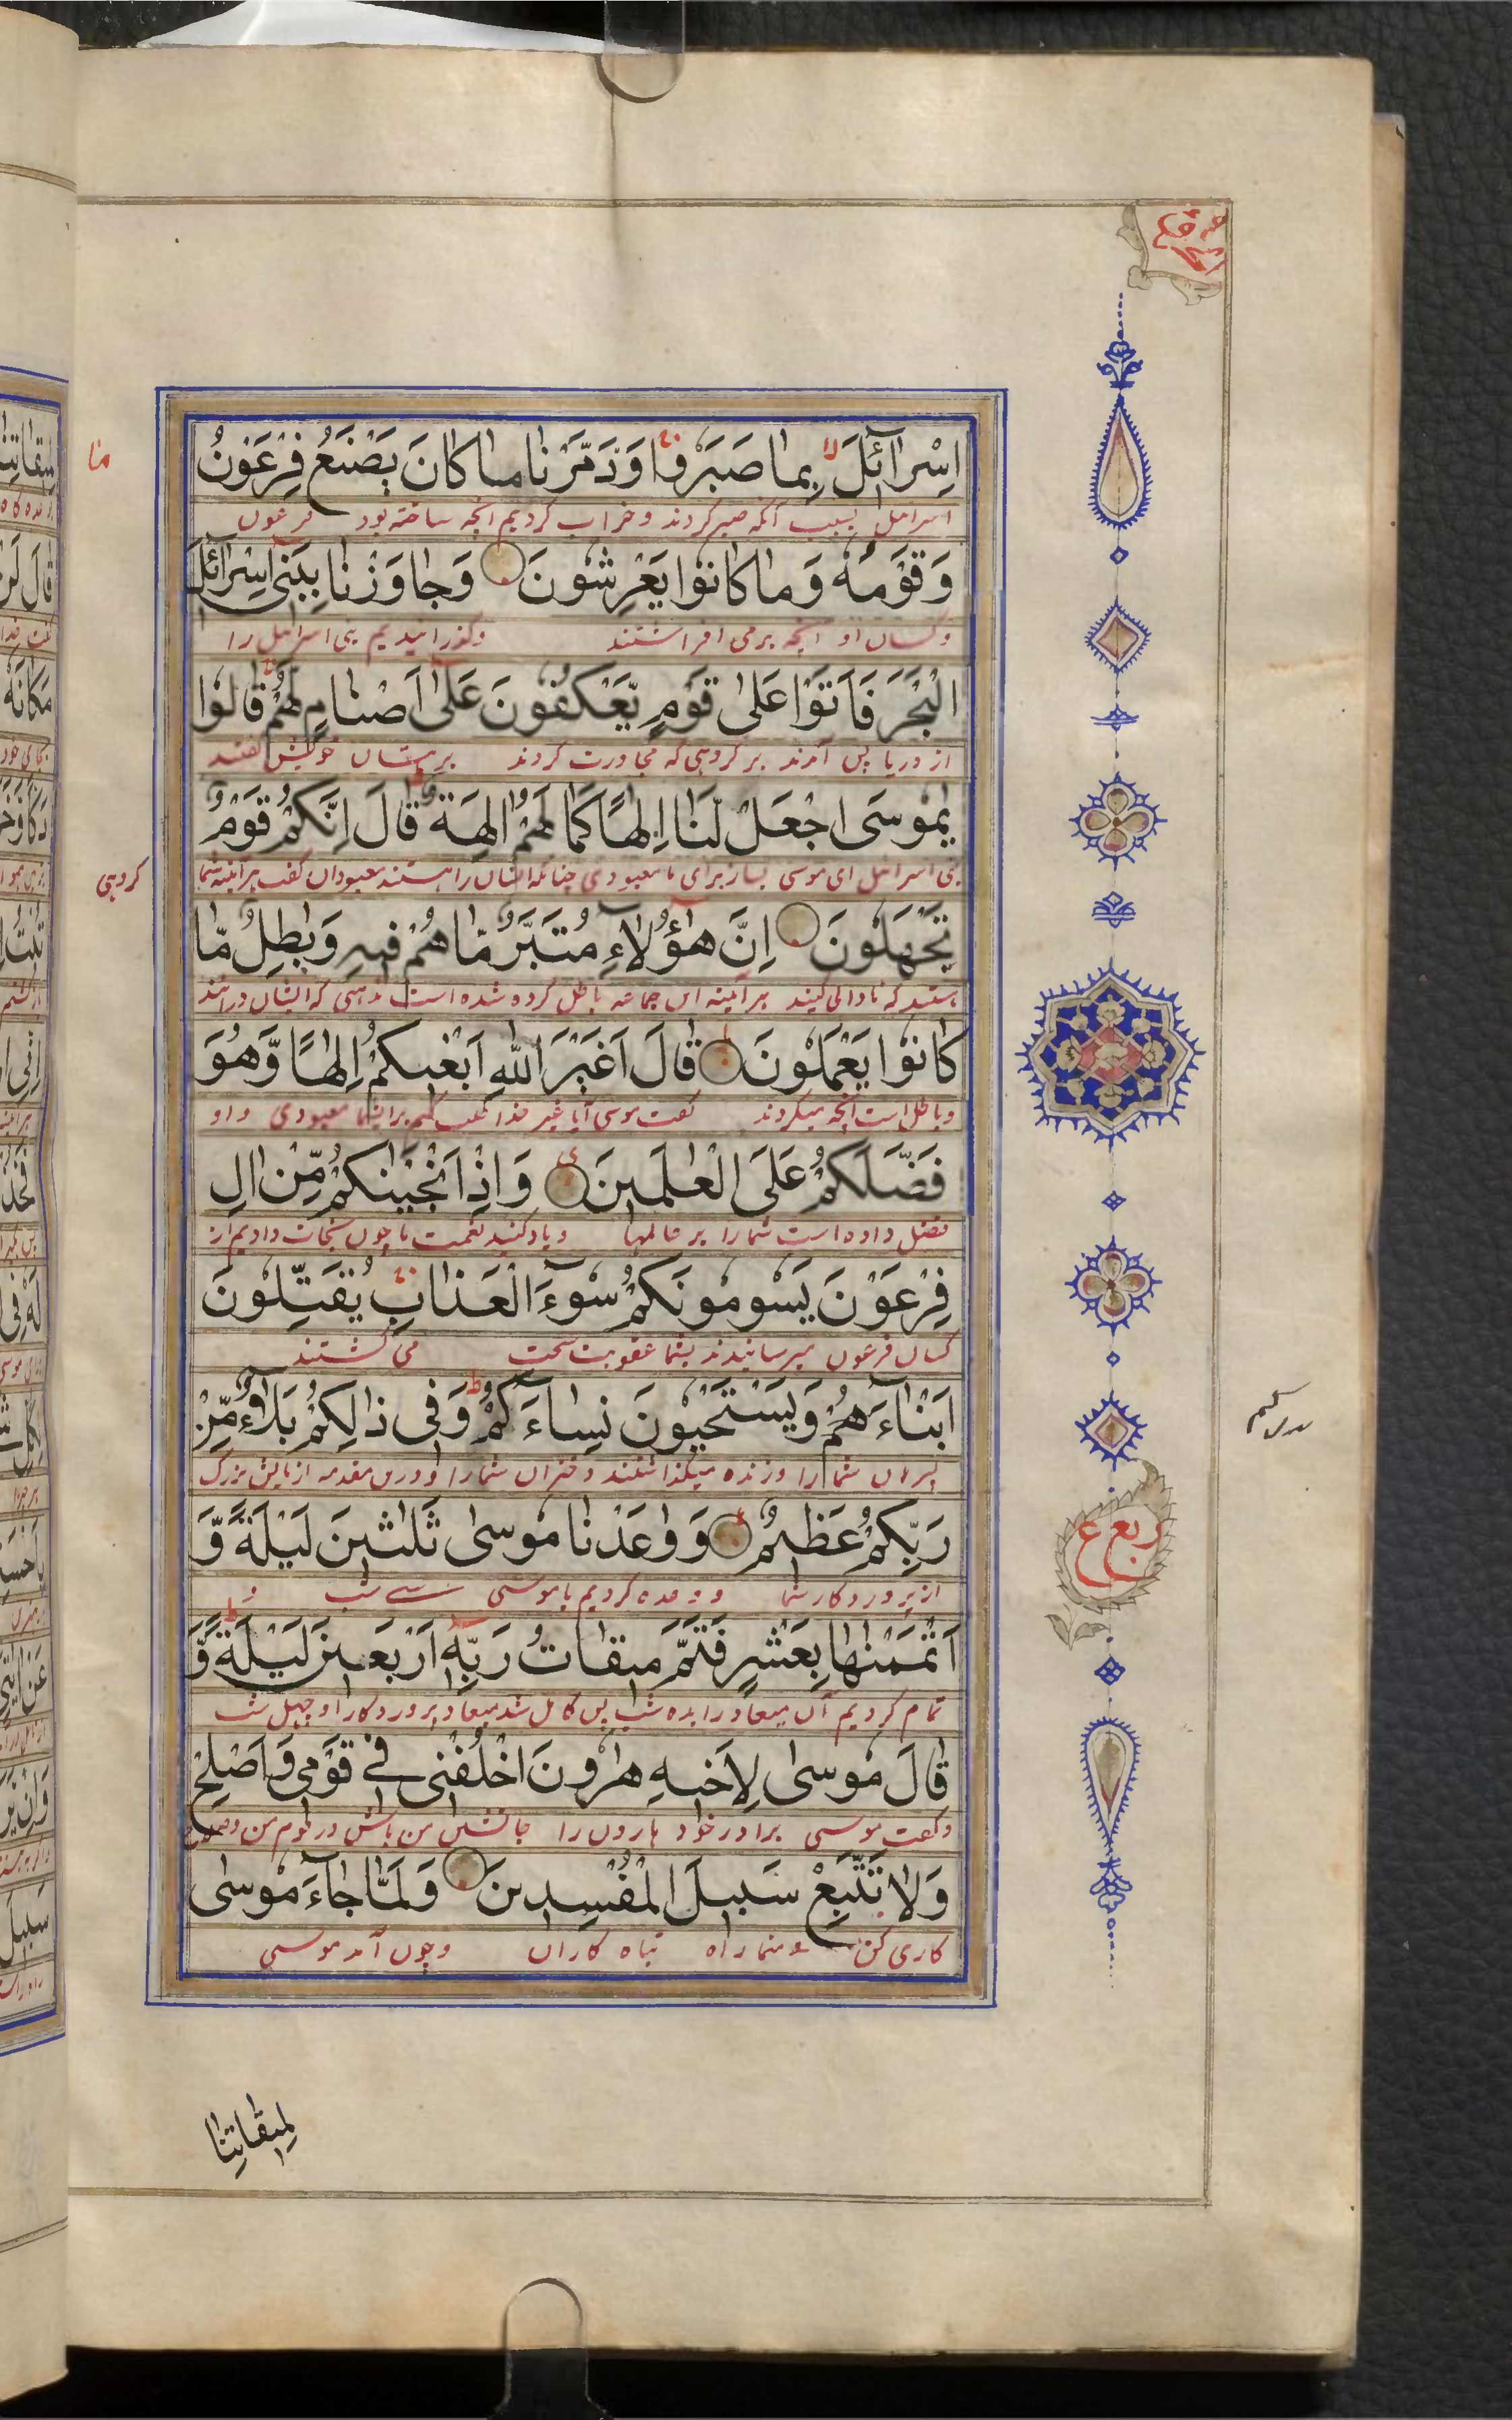 اِسْرآئلَ بِما صَبَرُوا وَدَمَّرْنا ما كانَ يَصْنَعُ فِرْعَوْنُ
بسبب آنكه صبر كردند و خراب كرديم آنچه ساخته بود فرعون
وَقَوْمُهُ وَما كانُوا يَعْرِشُونَ وَجاوَزْنا بِبَنى اِسْرآئلَ
وكسان او آنچه برمى افراشتند وگذرانيديم بنى اسرائيل را
الْبَحْرَ فَاَتَوْا عَلىٰ قَوْمٍ يَّعْكُفُونَ عَلىٰ اَصْنامٍ لَهُمْ قالُوا
از دريا پس آمدند بر گروهى كه مجاورت كردند بر بتان خويش گفتند
يٰمُوسَى اجْعَلْ لَنا اِلٰهًا كَما لَهُمْ اٰلِهَةٌ قالَ اِنَّكُمْ قَوْمٌ
بنى اسرائيل اى موسى بساز براى ما معبودى چنانكه ايشان را هستند معبودان گفت هر آئينه شما
تَجْهَلُونَ اِنَّ هٰؤُلاءِ مُتَبَّرٌ مّا هُمْ فيهِ وَبٰطِلٌ مّا
كه نادانى كنيد هر آئينه اين جماعه باطل كرده شده است مذهبى كه ايشان درآنند
كانُوا يَعْمَلُونَ قالَ اَغَيْرَ اللهِ اَبْغيكُمْ اِلٰهًا وَّهُوَ
وباطل است آنچه ميكردند گفت موسى آيا غير خدا طلب كنم براى شما معبودى و او
فَضَّلَكُمْ عَلَى الْعٰلَمينَ وَاِذْ اَنْجَيْنٰكُمْ مِّنْ اٰلِ
فضل داده است شما را بر عالمها وياد كنيد نعمت ما چون نجات داديم از
فِرْعَوْنَ يَسُومُونَكُمْ سُوٓءَ الْعَذابِ يُقَتِّلُونَ
كسان فرعون ميرسانيدند بشما عقوبت سخت مى كشتند
اَبْناءَهُمْ وَيَسْتَحْيُونَ نِساءَكُمْ وَفى ذالِكُمْ بَلاؤٌ مِّنْ
پسران شما را وزنده ميگذاشتند دختران شما را و درين مقدمه آزمايش بزرگ
رَبِّكُمْ عَظيمٌ وَوٰعَدْنا مُوسىٰ ثَلٰثينَ لَيْلَةً وَّ
از پروردگار شما و وعده كرديم با موسى سى شب و
اَتْمَمْنٰها بِعَشْرٍ فَتَمَّ ميقاتُ رَبِّهٖ اَرْبَعينَ لَيْلَةً وَّ
تمام كرديم آن ميعاد را بده شب پس كامل شد ميعاد پروردگار او چهل شب
قالَ مُوسىٰ لِاَخيهِ هٰرُونَ اخْلُفْنى فى قَوْمى وَاَصْلِحْ
وگفت موسى برادر خود هارون را جانشين من باش در قوم من وصلاح
وَلا تَتَّبِعْ سَبيلَ الْمُفْسِدينَ وَلَمّا جآءَ مُوسىٰ
كارى كن راه تباه كاران وچون آمد موسى
لِميقاتِنا
ما
گروهى
ربع
ع